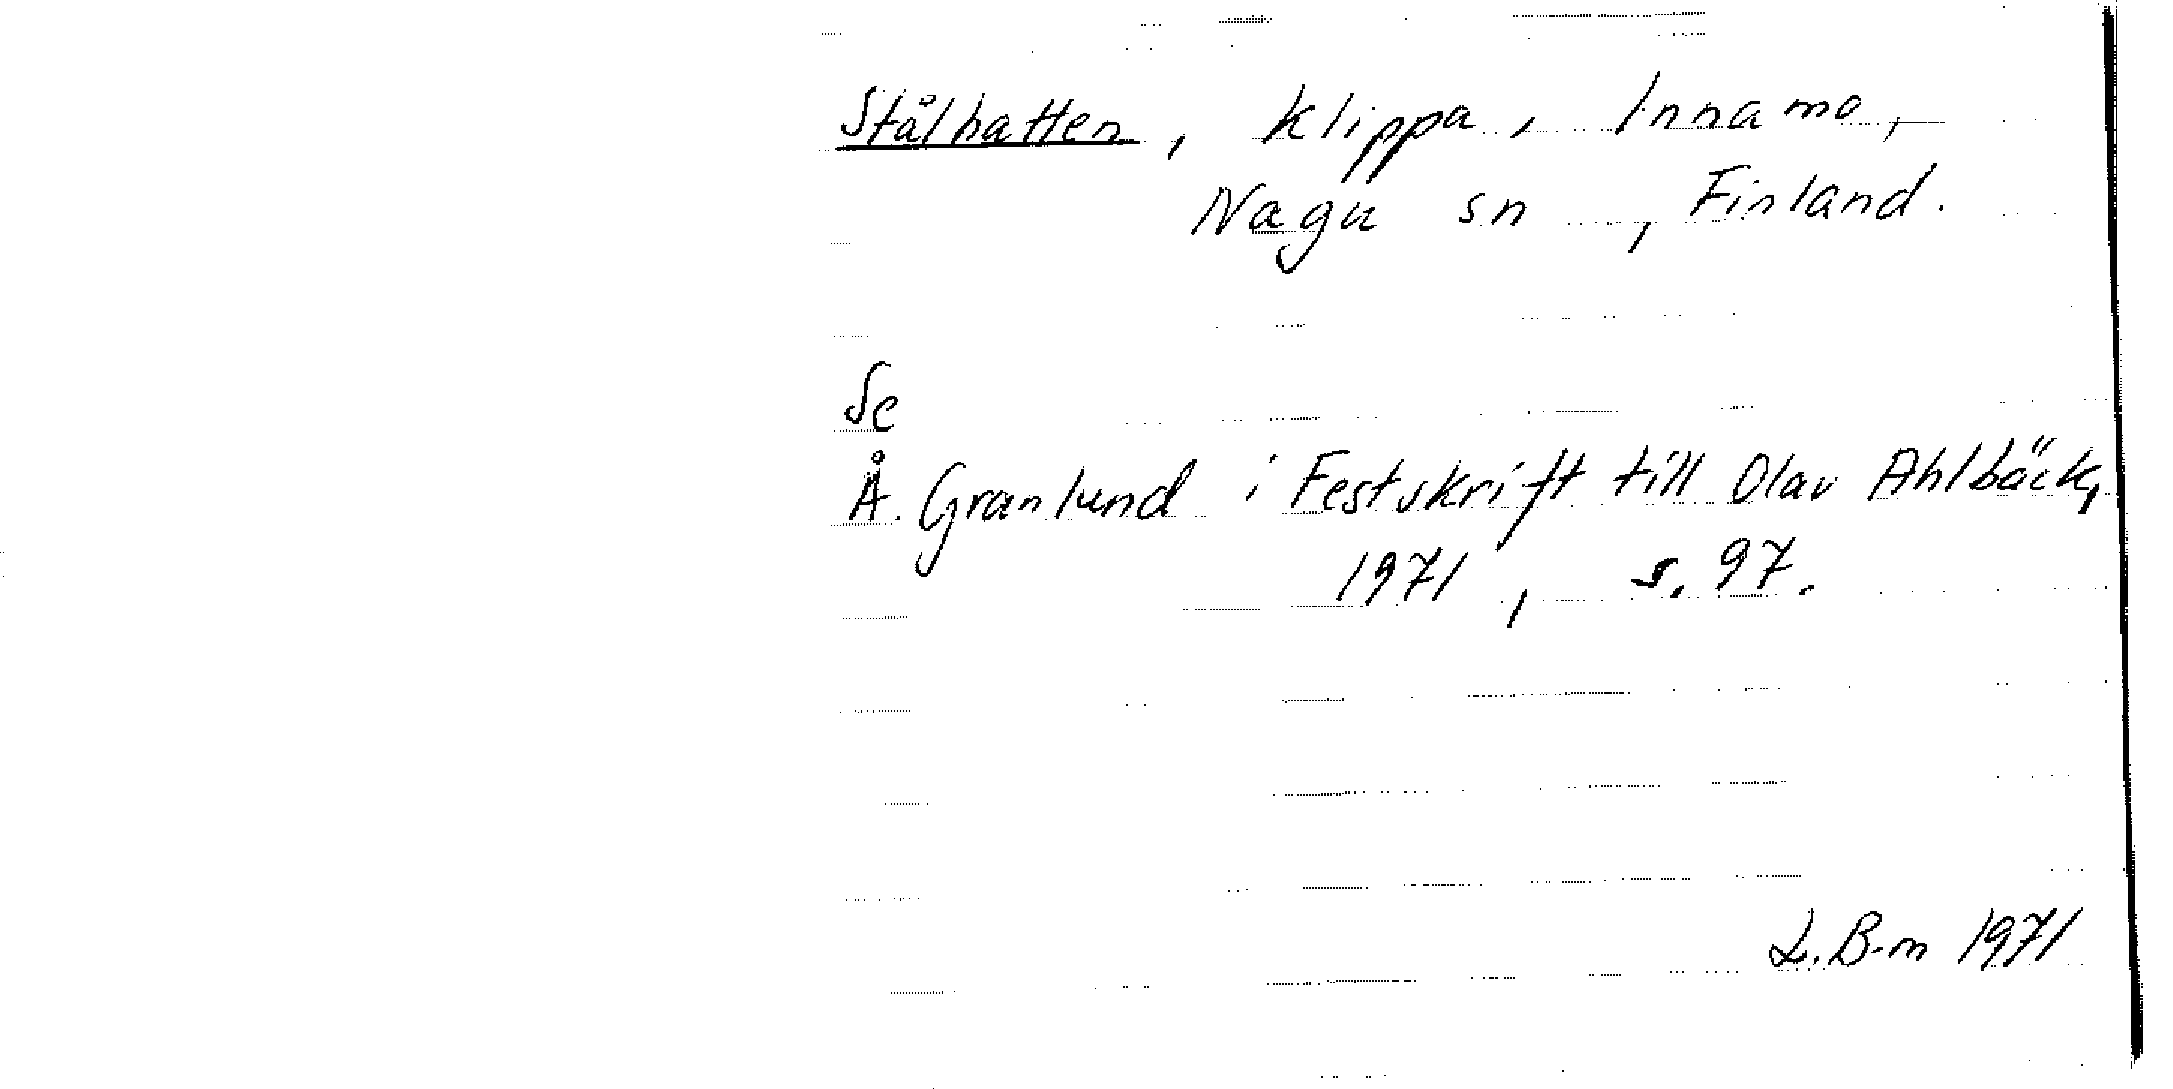 Stålhatten, klippa, Innamo,
Nagu sn, Finland.
Se
Å. Granlund i Festskrift till Olav Ahlbäck,
1971, s. 97.
L. B-m 1971